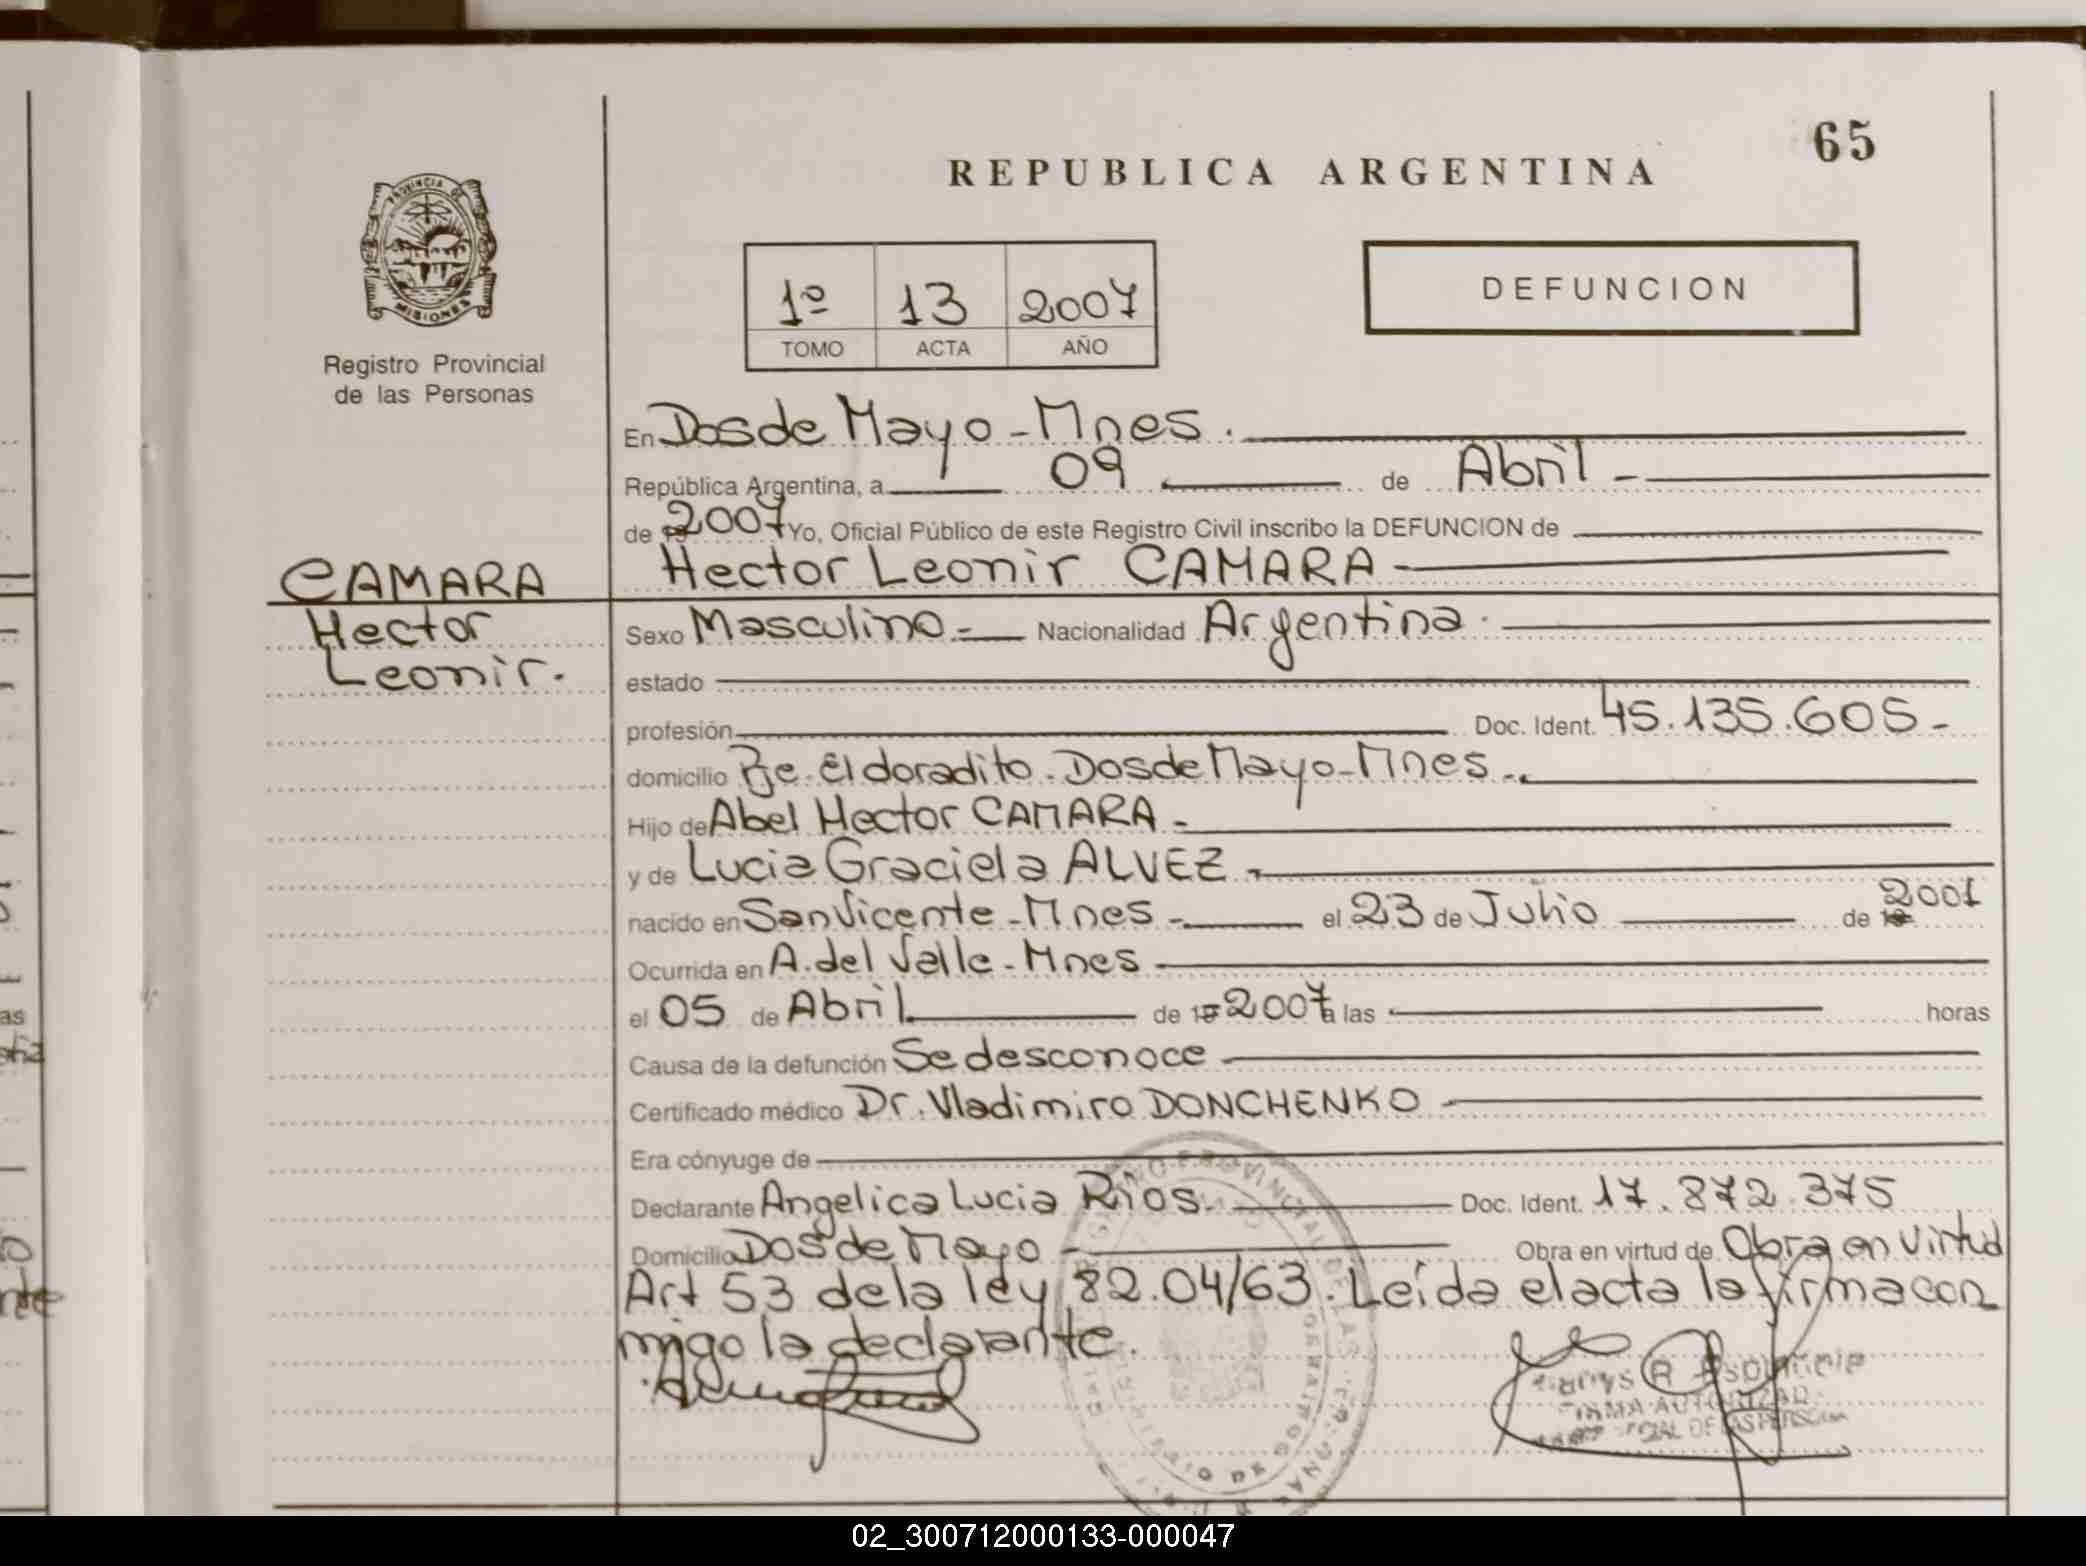 65
REPUBLICA ARGENTINA
PROVINCIA DE
MISIONES
Registro Provincial
de las Personas
1º 13 2007
TOMO ACTA AÑO
DEFUNCION
En Dos de Mayo - Mnes.
República Argentina, a 09 de Abril -
de 2007 Yo, Oficial Público de este Registro Civil inscribo la DEFUNCION de
CAMARA Hector Leonir CAMARA
Hector Sexo Masculino.- Nacionalidad Argentina.
Leonir. estado
profesión Doc. Ident. 45.135.605-
domicilio Pje. Eldoradito. Dos de Mayo - Mnes.
Hijo de Abel Hector CAMARA -
y de Lucia Graciela ALVEZ -
nacido en San Vicente - Mnes - el 23 de Julio de 19 2001
Ocurrida en A. del Valle - Mnes
el 05 de Abril de 19 2007 a las horas
Causa de la defunción Se desconoce
Certificado médico Dr. Vladimiro DONCHENKO
Era cónyuge de
Declarante Angelica Lucia Rios. Doc. Ident. 17.872.375
Domicilio Dos de Mayo Obra en virtud de Obra en virtud
Art 53 de la ley 82.04/63. Leída el acta la firma con
migo la declarante.
REGISTRO PROVINCIAL DE LAS
MINISTERIO DE GOBIERNO
FIRMA AUTORIZAD
02_300712000133-000047